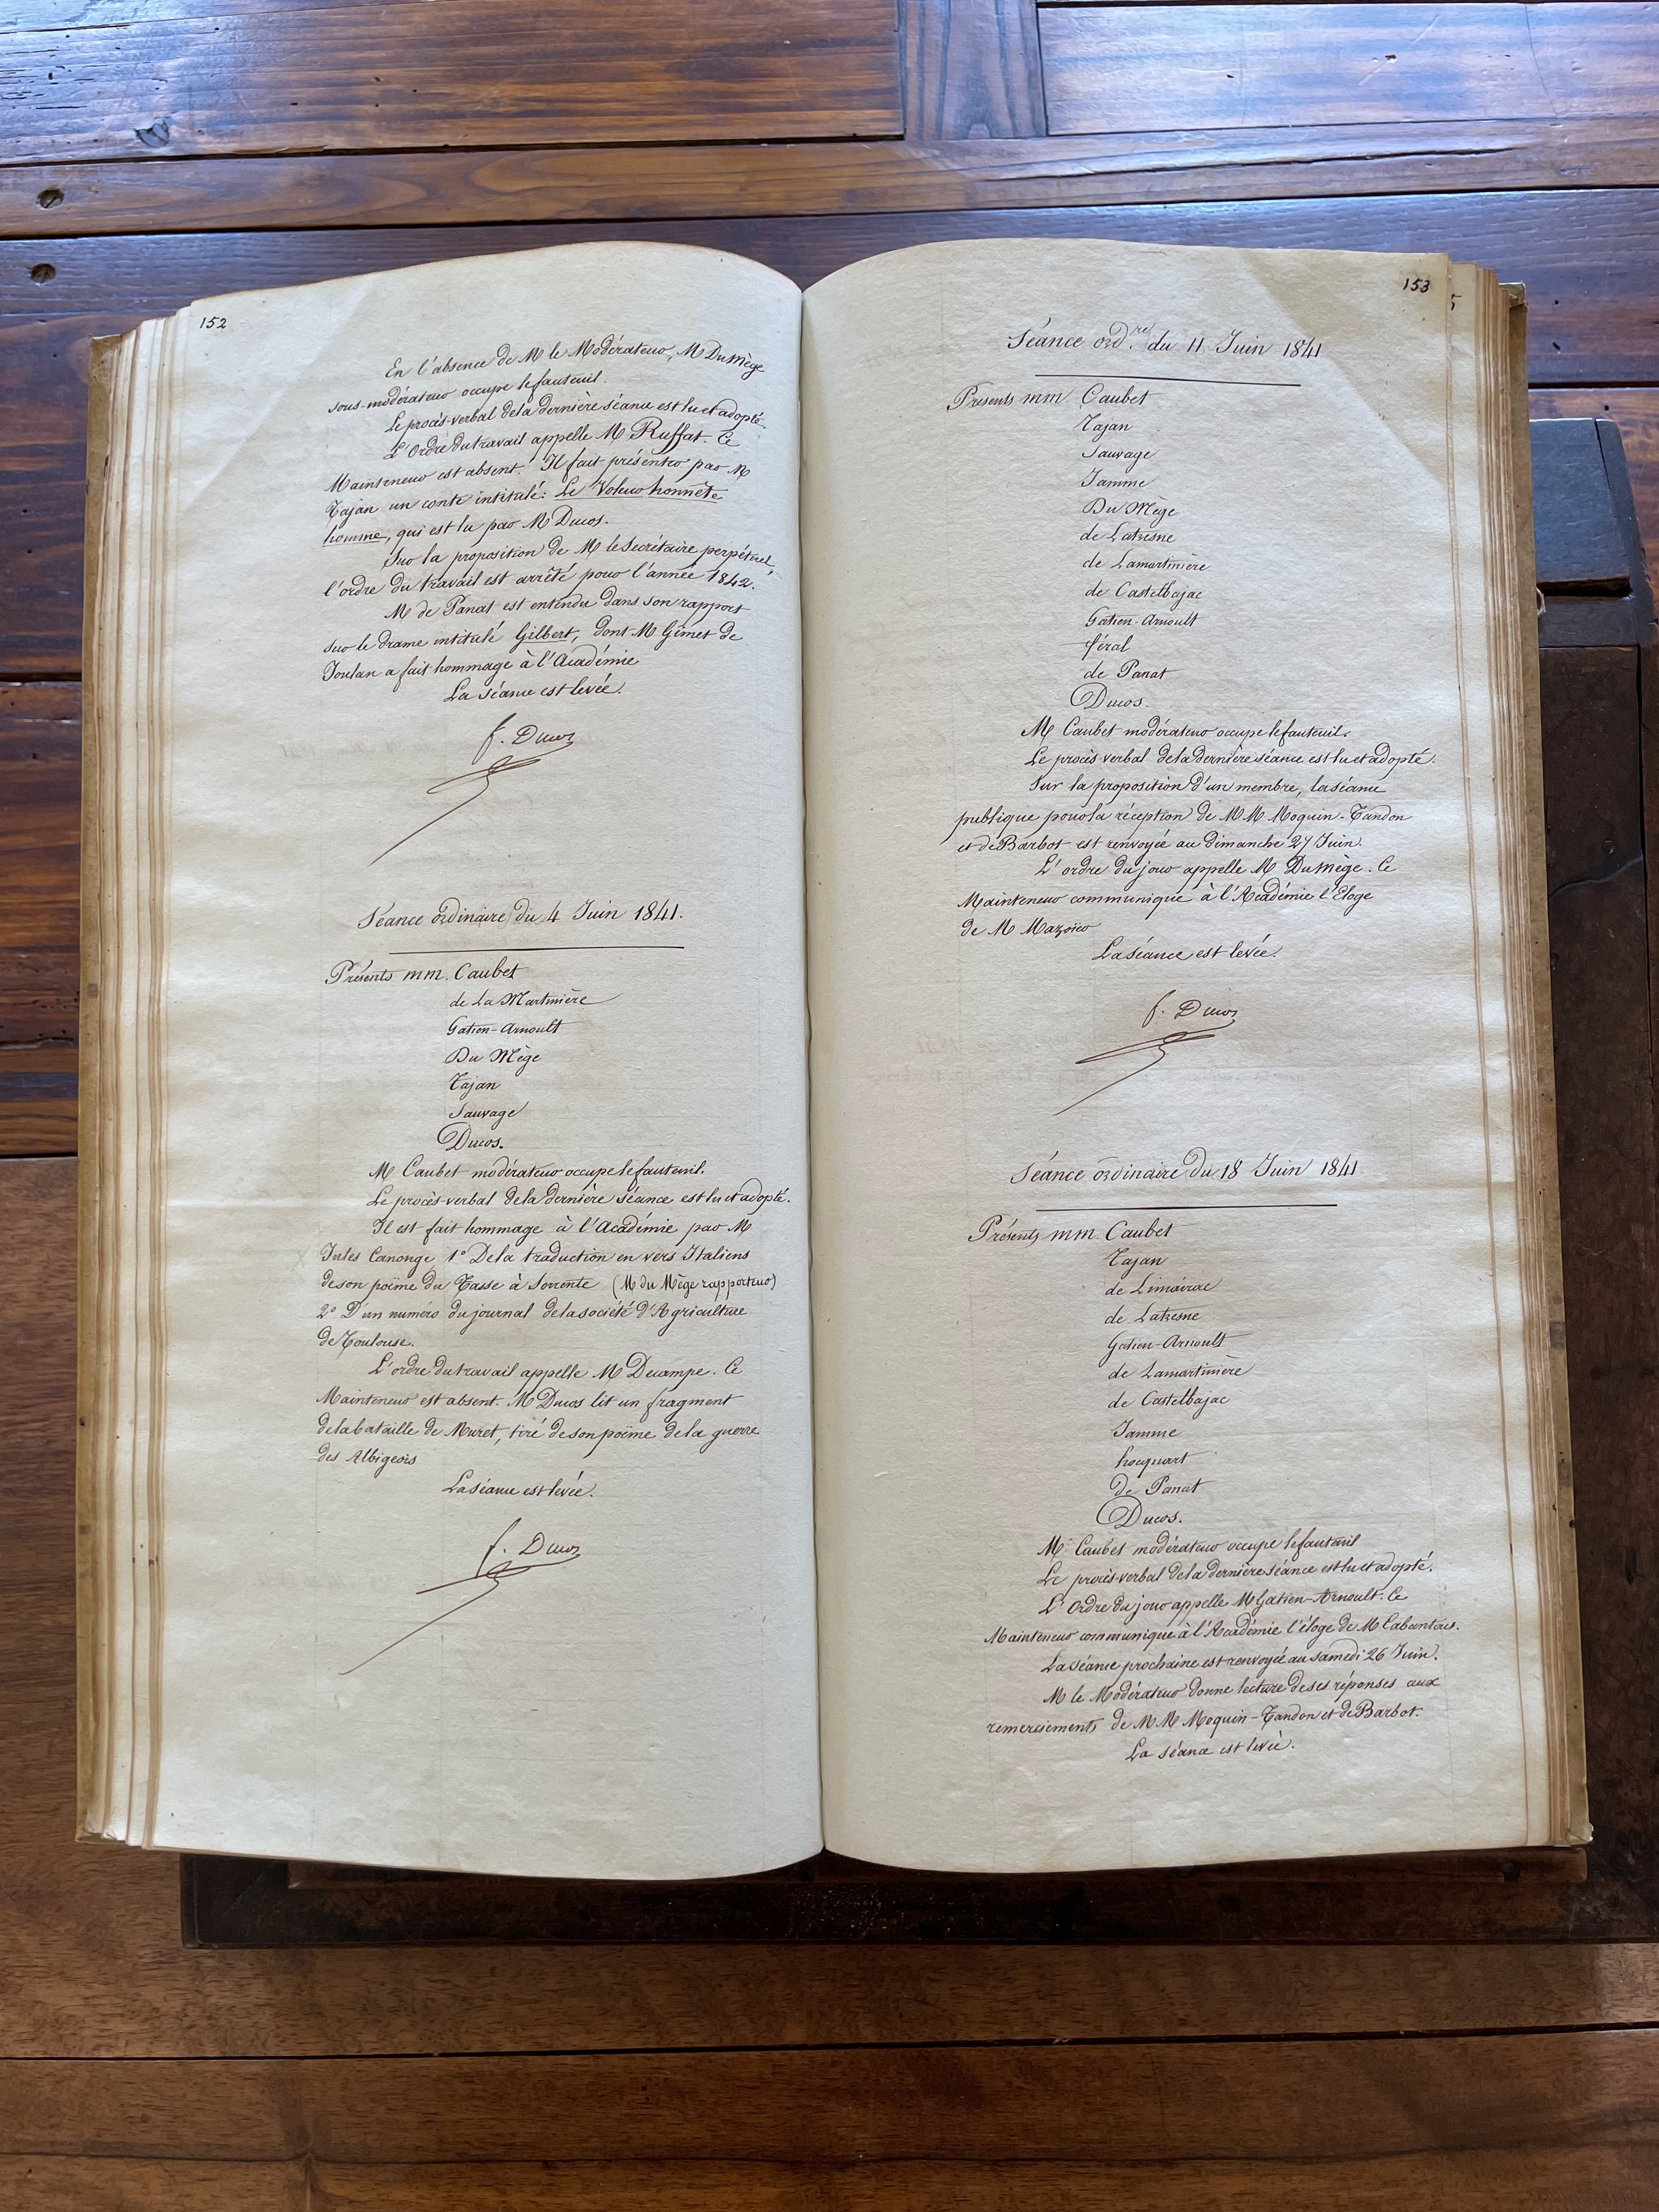 152
En l'absence de M le Modérateur, M Du Mège
sous-modérateur occupe le fauteuil.
Le procès-verbal de la dernière séance est lu et adopté.
L'Ordre du travail appelle M Ruffat. Ce
Mainteneur est absent. Il fait présenter par M
Tajan un conte intitulé: Le Voleur honnête
homme, qui est lu par M Ducos.
Sur la proposition de M le Secrétaire perpétuel,
l'ordre du travail est arrêté pour l'année 1842.
M de Panat est entendu dans son rapport
sur le drame intitulé Gilbert, dont M Gimet de
Joulan a fait hommage à l'Académie
La séance est levée.
f. Ducos
Séance ordinaire du 4 Juin 1841.
Présents mm. Caubet
de La Martinière
Gatien-Arnoult
Du Mège
Tajan
Sauvage
Ducos.
M Caubet modérateur occupe le fauteuil.
Le procès-verbal de la dernière séance est lu et adopté.
Il est fait hommage à l'Académie par M
Jules Canonge 1° De la traduction en vers Italiens
de son poëme du Tasse à Sorrente (M du Mège rapporteur)
2° D'un numéro du journal de la société d'Agriculture
de Toulouse.
L'ordre du travail appelle M Decampe. Ce
Mainteneur est absent. M Ducos lit un fragment
de la bataille de Muret, tiré de son poëme de la guerre
des Albigeois
La séance est levée.
f. Ducos
153
Séance ord.re du 11 Juin 1841
Présents mm Caubet
Tajan
Sauvage
Jamme
Du Mège
de Latresne
de Lamartinière
de Castelbajac
Gatien-Arnoult
féral
de Panat
Ducos.
M Caubet modérateur occupe le fauteuil.
Le procès verbal de la dernière séance est lu et adopté.
Sur la proposition d'un membre, la séance
publique pour la réception de M M Moquin-Tandon
et de Barbot est renvoyée au dimanche 27 Juin.
L'ordre du jour appelle M Du Mège. Ce
Mainteneur communique à l'Académie l'Eloge
de M Mazoïer
La séance est levée.
f. Ducos
Séance ordinaire du 18 Juin 1841
Présents mm. Caubet
Tajan
de Limairac
de Latresne
Gatien-Arnoult
de Lamartinière
de Castelbajac
Jamme
hocquart
de Panat
Ducos.
M Caubet modérateur occupe le fauteuil
Le procès-verbal de la dernière séance est lu et adopté.
L'Ordre du jour appelle M Gatien-Arnoult. Ce
Mainteneur communique à l'Académie l'éloge de M Cabantous.
La séance prochaine est renvoyée au samedi 26 Juin.
M le Modérateur donne lecture de ses réponses aux
remerciements de M M Moquin-Tandon et de Barbot.
La séance est levée.